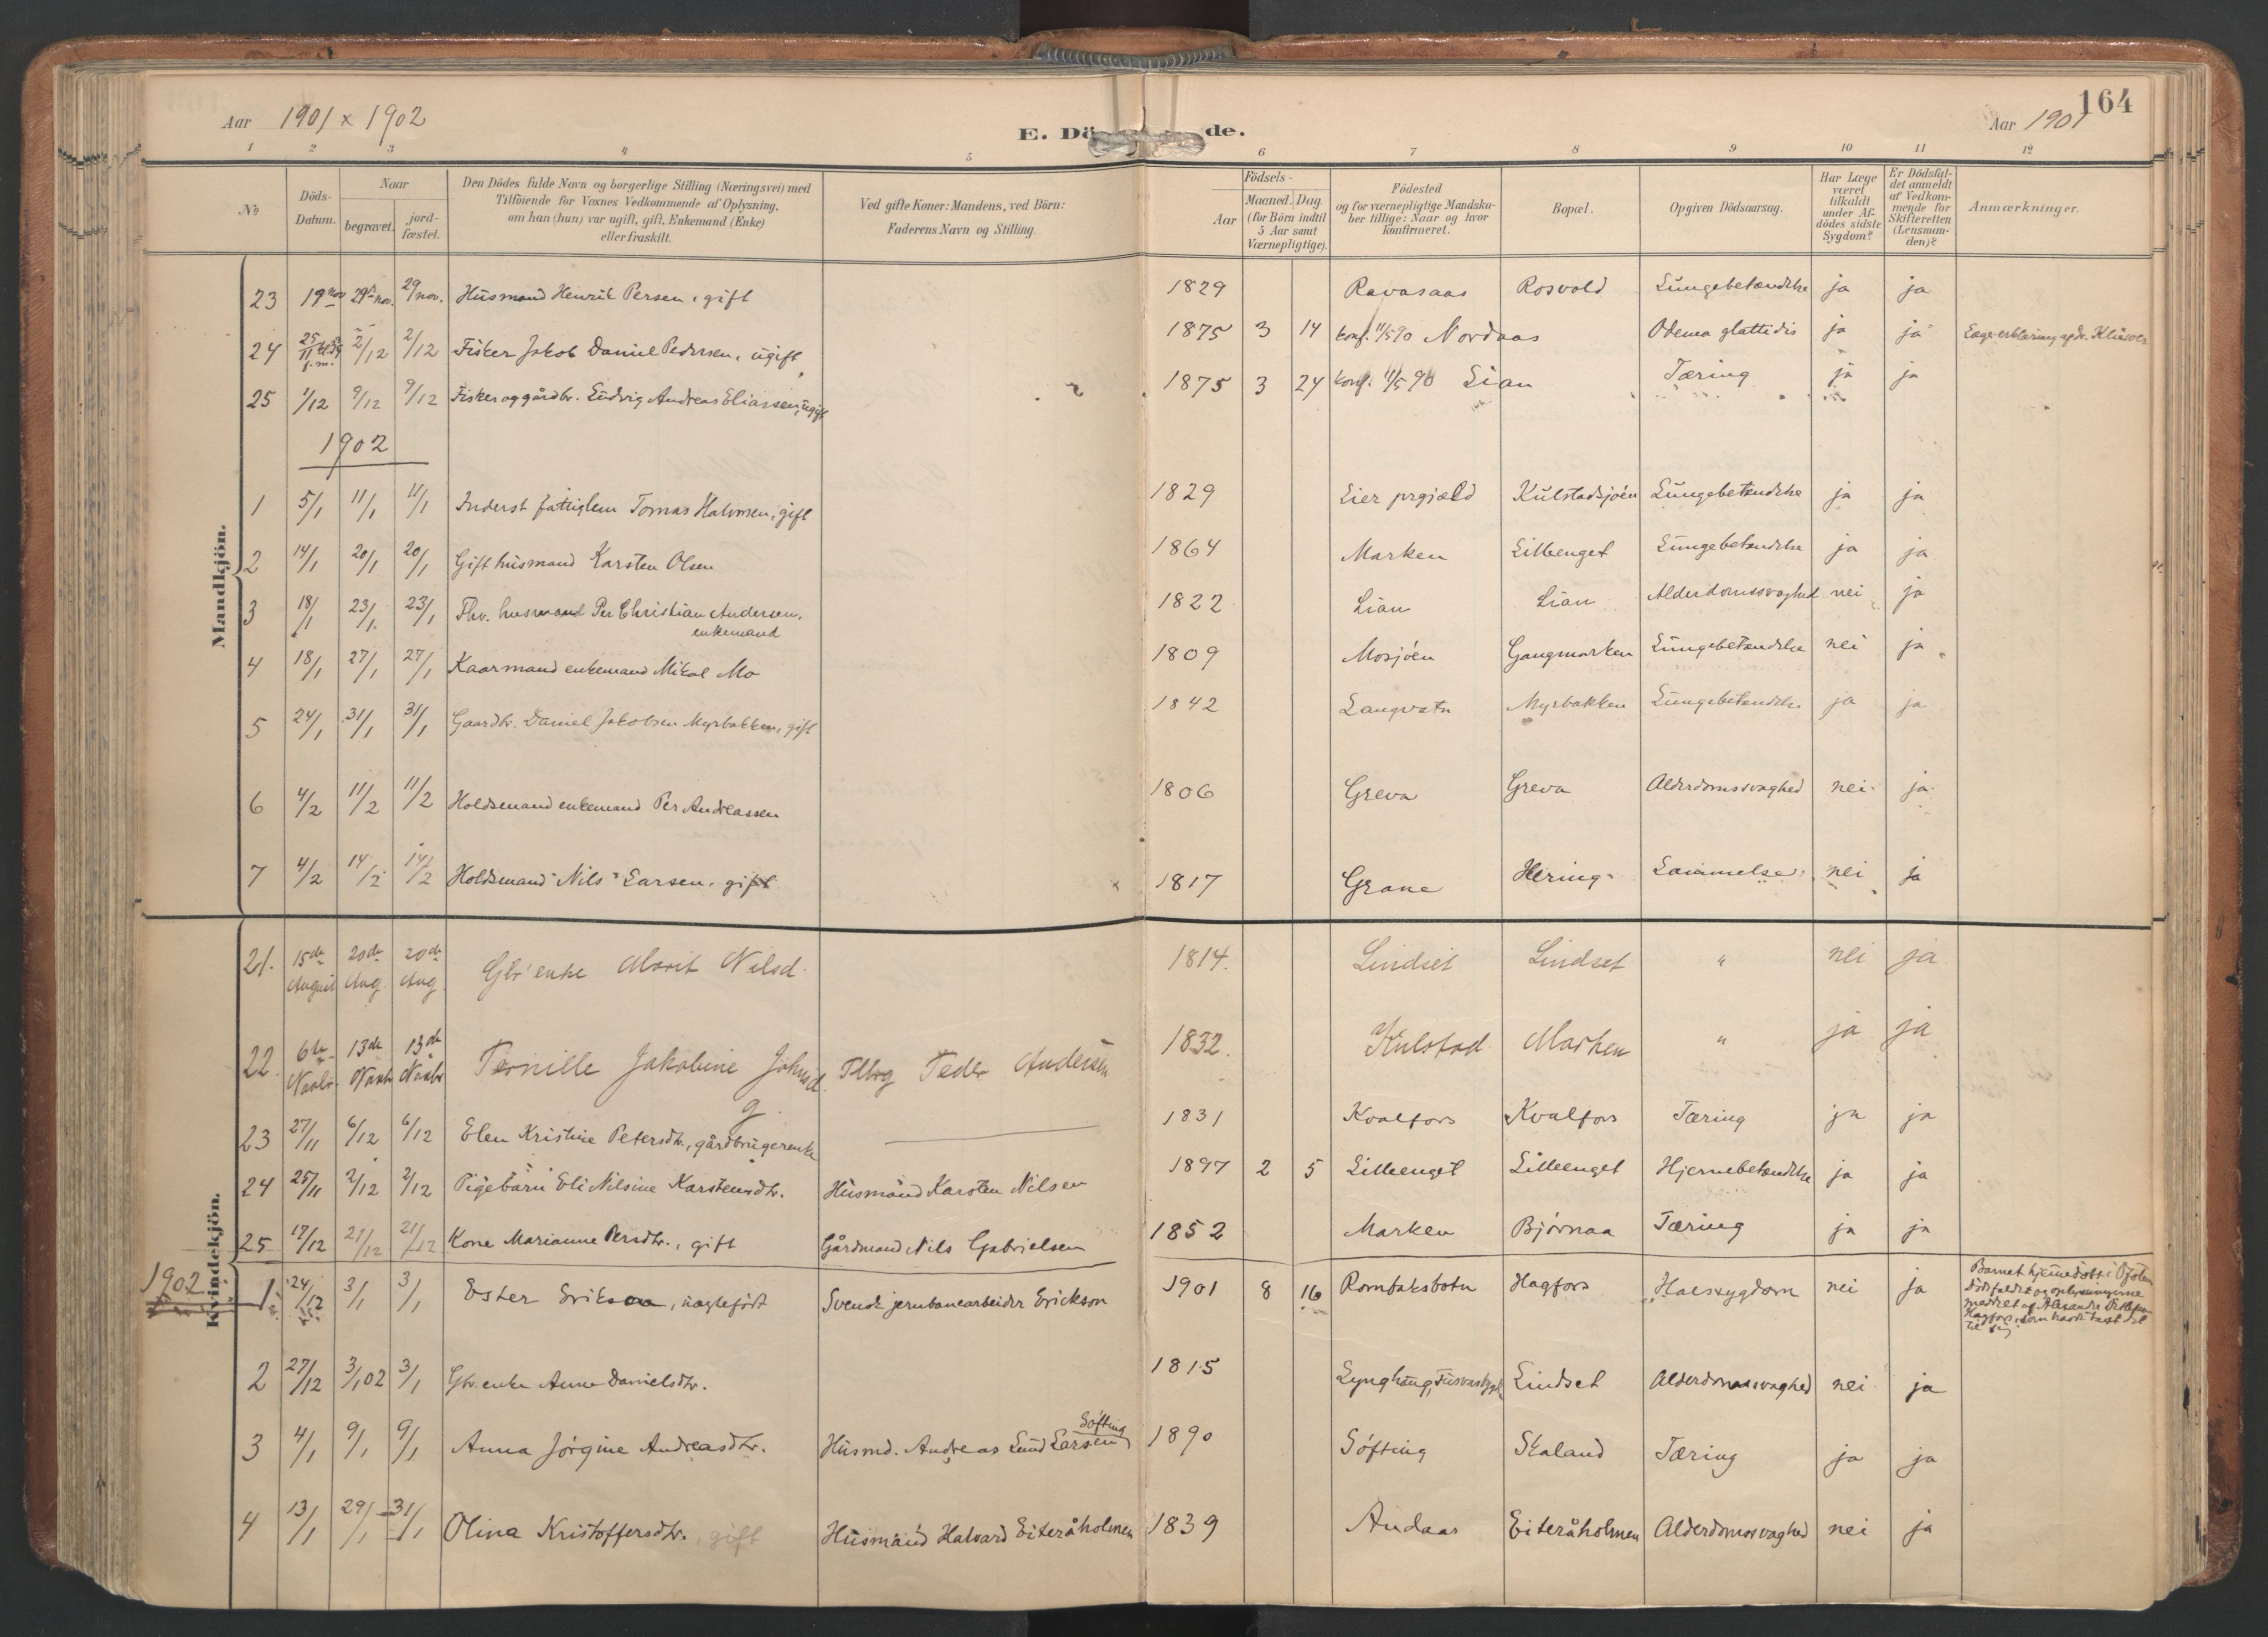 164
Aar 1901 x 1902
E. Dö de.
Aar 1901
1 2 3 4 5 6 7 8 9 10 11 12
No
Döds-Datum.
Naar
begravet.
jord-fæstet.
Den Dödes fulde Navn og borgerlige Stilling (Næringsvei) med
Tilföiende for Voxnes Vedkommende af Oplysning,
om han (hun) var ugift, gift, Enkemand (Enke)
eller fraskilt.
Ved gifte Koner: Mandens, ved Börn:
Faderens Navn og Stilling.
Födsels-
Aar
Maaned. Dag.
(for Börn indtil
5 Aar samt
Værnepligtige).
Födested
og for værnepligtige Mandska-
ber tillige: Naar og hvor
konfirmeret.
Bopæl.
Opgiven Dödsaarsag.
Har Læge
været
tilkaldt
under Af-
dödes sidste
Sygdom?
Er Dödsfal-
det anmeldt
af Vedkom-
mende for
Skifteretten
(Lensman-
den)?
Anmærkninger.
Mandkjön.
23 19 nov 29 nov. 29/nov. Husmand Henrik Persen, gift 1829 Ravasaas Rosvold Lungebetændelse ja ja
24 25/11 f.m. 2/12 2/12 Fisker Jakob Daniel Pedersen, ugift 1875 3 14 konf. 11/5 90 Nordaas Odema glattidis ja ja Læge-erklæring af dr. Klüwer
25 1/12 9/12 9/12 Fisker og gårdbr. Ludvig Andreas Eliassen, ugift 1875 3 24 konf. 11/5 90 Lian Tæring ja ja
1902
1 5/1 11/1 11/1 Inderst fattiglem Tomas Halvorsen, gift 1829 Lier prgjæld Kulstadsjøen Lungebetændelse ja ja
2 14/1 20/1 20/1 Gift husmand Karsten Olsen 1864 Marken Lilleenget Lungebetændelse ja ja
3 18/1 23/1. 23/1 Fhv. husmand Per Christian Andersen, enkemand 1822 Lian Lian Alderdomssvaghed nei ja
4 18/1 27/1 27/1 Kaarmand enkemand Mikal Mo 1809 Mosjøen Gangmarken Lungebetændelse nei ja
5 24/1 31/1 31/1 Gaardbr. Daniel Jakobsen Myrbakken, gift 1842 Langvatn Myrbakken Lungebetændelse ja ja
6 4/2 11/2 11/2 Holdsmand enkemand Per Andreassen 1806 Greva Greva Alderdomssvaghed nei ja
7 4/2 14/2 14/2 Holdsmand Nils Larsen, gift 1817 Grane Hering Lammelse nei ja
Kvindekjön.
21. 15de August 20de Aug 20de Aug. Gbr enke Marit Nilsd. 1814. Lindset Lindset " nei ja
22. 6te Novbr. 13de Novbr 13de Novbr Pernille Jakobine Johnsd. g. Peder Andersen 1832. Kulstad Marken " ja ja
23 27/11 6/12 6/12 Elen Kristine Petersdtr., gårdbrugerenke 1831 Kvalfors Kvalfors Tæring ja ja
24 25/11 2/12 2/12 Pigebarn Eli Nilsine Karstensdtr. Husmand Karsten Nilsen 1897 2 5 Lilleenget Lilleenget Hjernebetændelse ja ja
25 17/12 21/12 21/12 Kone Marianne Persdtr., gift Gårdmand Nils Gabrielsen 1852 Marken Bjørnaa Tæring ja ja
1902
1 24/12 3/1 3/1 Ester Erikson, uægtefødt Svensk jernbanearbeider Erickson 1901 8 16 Romtaksbotn Hagfors Halssygdom nei ja Barnet hjemmedøbt
2 27/12 3/1 02 3/1 Gbr. enke Anne Danielsdtr. 1815 Lynghaug, Lindset Alderdomssvaghed nei ja
3 4/1 9/1 9/1 Anna Jørgine Andreasdtr. Husmd. Andreas Lund Larsen Søfting 1890 Søfting Skaland Tæring ja ja
4 13/1 29/1 31/1 Olina Kristoffersdtr., gift Husmand Halvard Eiteråholmen 1839 Andaas Eiteråholmen Alderdomssvaghed nei ja